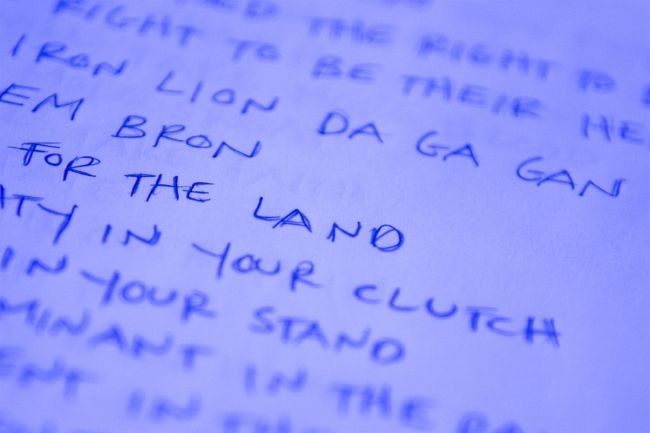 THE RIGHT TO
RIGHT TO BE THEIR HE
IRON LION DA GA GAN
EM BRON
FOR THE LAND
ITY IN YOUR CLUTCH
IN YOUR STAND
MINANT IN THE
ENT IN